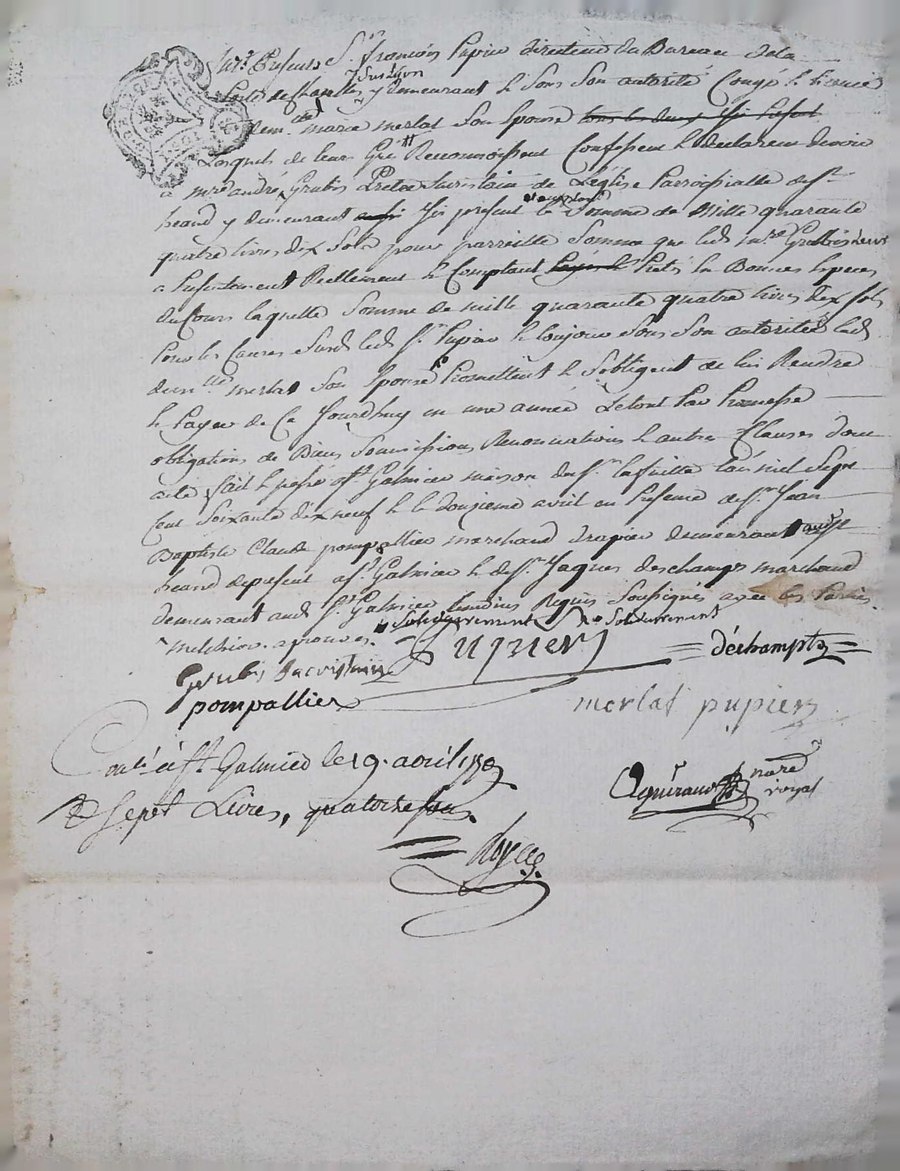 furt Presents Sr. françois Pupier directeur du Bureau de la
Poste de Chazelles sur Lion y demeurant et sous son autorité Congé et Licence
dem.lle marie merlat son Epouse tous les deux ici présent
Lesquels de leurs Gré # Reconnoissent Confessent et declarent devoir
a mre. andré Grubis Prêtre Sacristain de L'Eglise Parroissialle de St.
heand y demeurant ici present la Somme de Mille quarante
quatre livres dix sols pour parreille Somme que led. mre. Grubis leur
a Présentement Réellement et Comptant Prété en Bonnes Especes
du Cours laquelle Somme de mille quarante quatre livres dix sols
Pour les Causes Susd. led. Sr. Pupier et toujour Sous Son autorité lad.
dem.lle merlat Son Epouse Promettent et S'obligent de lui Rendre
et Payer de Ce Jourdhuy en une année Le tout Par Promesse
obligations de Biens Soumissions Renonciations et autre Clauses dont
acte fait et passé a St. Galmier maison du Sr. lafuille l'an mil Sept
Cent Soixante dix neuf et le douzieme avril en Presence de Sr. Jean
Baptiste Claude pompallier marchand drapier demeurant aud. St
heand de present a St. Galmier et de Sr. Jaques deschamps marchand
demeurant aud. St. Galmier temoins Requis Soussignés avec les Parties.
# Solidairement # Solidairement
approuvés
Pupier déchampts
Grubis Sacristain
pompallier merlat pupier
Conlé à St. Galmier le 19. avril 1779
R Sept Livres, quatorze sous
Aguiraud nore royal